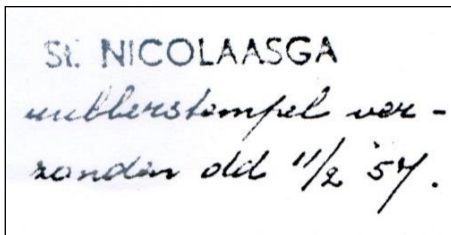 St. NICOLAASGA
rubberstempel ver-
zonden dd 11/2 '57.